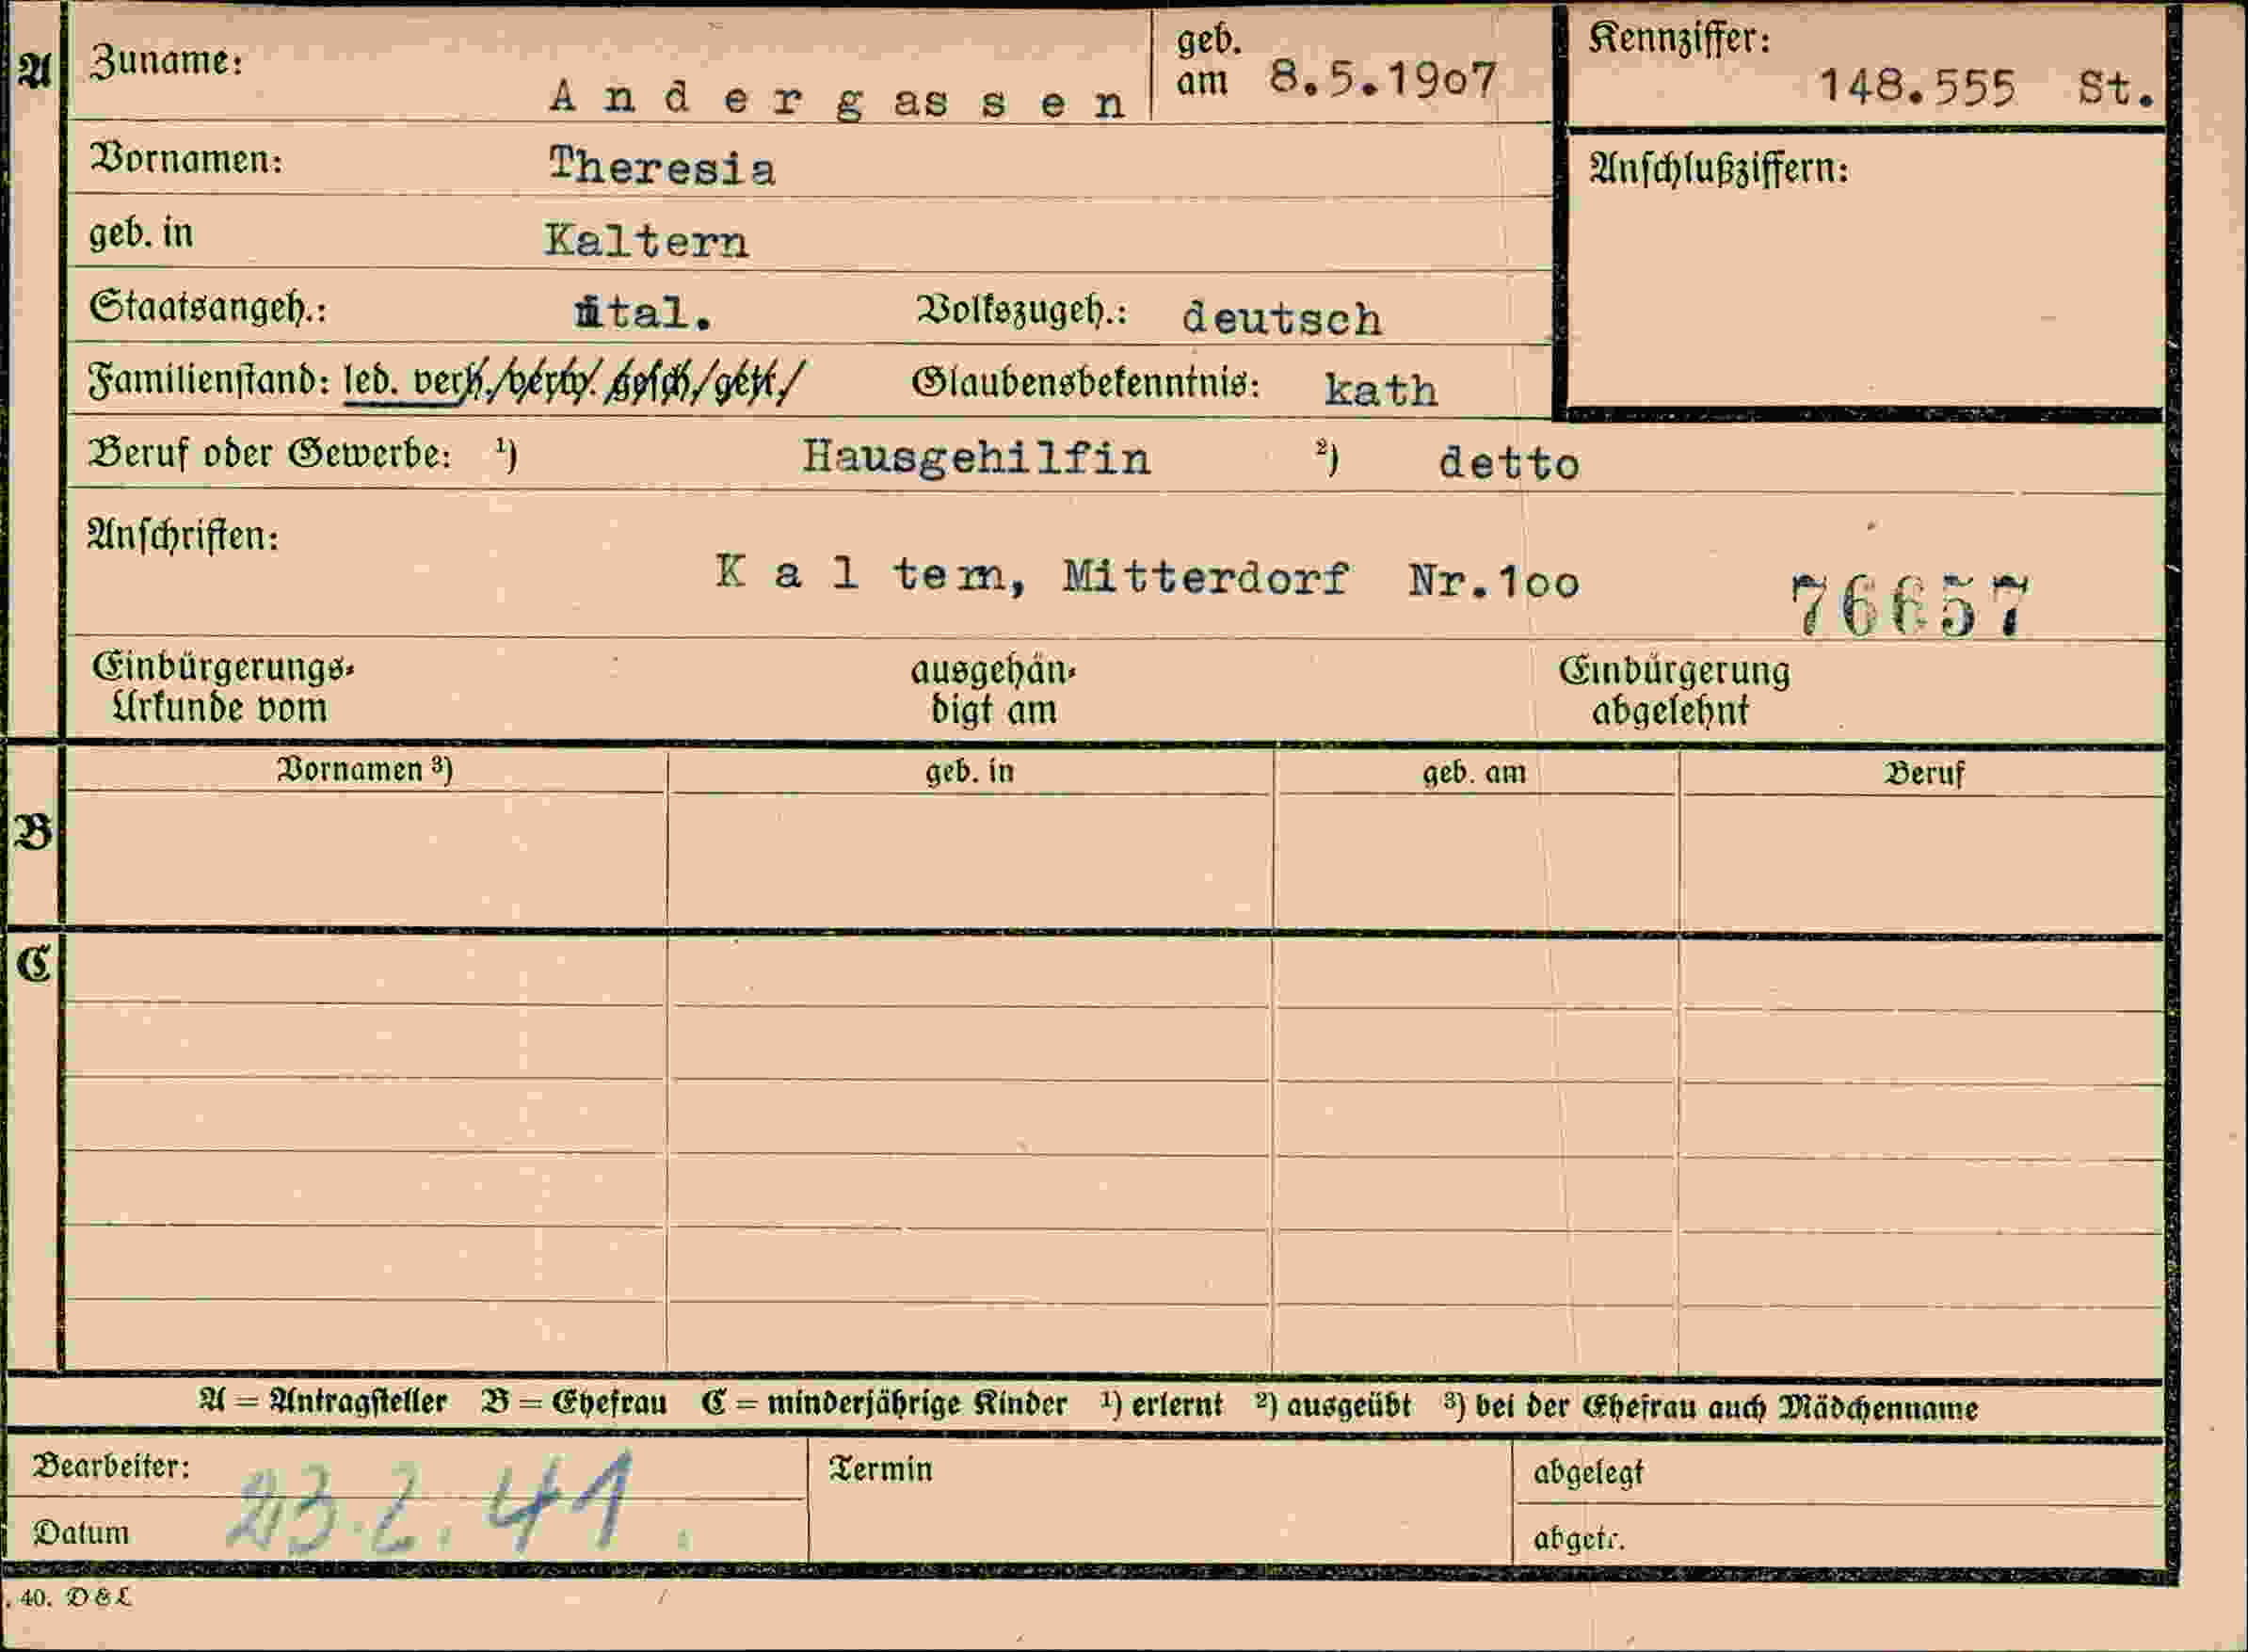 A Zuname: Andergassen geb. am 8.5.1907 Kennziffer: 148.555 St.
Vornamen: Theresia Anschlußziffern:
geb. in Kaltern
Staatsangeh.: ital. Volkszugeh.: deutsch
Familienstand: led. verh. verw. gesch. getr. Glaubensbekenntnis: kath
Beruf oder Gewerbe: 1) Hausgehilfin 2) detto
Anschriften:
Kaltern, Mitterdorf Nr.100 76657
Einbürgerungs- ausgehän- Einbürgerung
Urkunde vom digt am abgelehnt
Vornamen 3) geb. in geb. am Beruf
B
C
A = Antragsteller B = Ehefrau C = minderjährige Kinder 1) erlernt 2) ausgeübt 3) bei der Ehefrau auch Mädchenname
Bearbeiter: Termin abgelegt
23.2.41.
Datum abgetr.
. 40. D & L